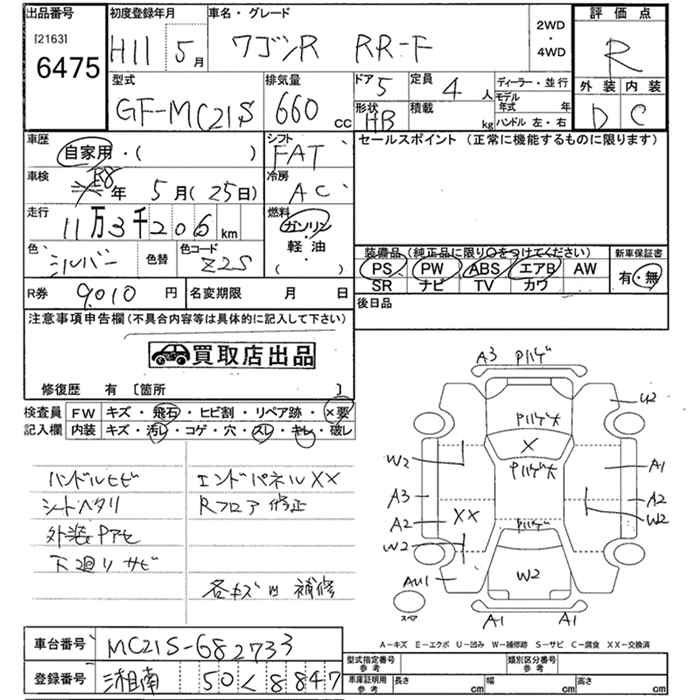 出品番号 初度登録年月 車名・グレード 評価点
[2163] 6475 H11 5月 ワゴンR RR-F 2WD・4WD R
型式 排気量 ドア 5 定員 4人 ディーラー・並行 外装 内装
GF-MC21S 660cc 形状 HB 積載 kg モデル年式 年 D C
ハンドル 左・右
車歴 自家用・( ) シフト FAT セールスポイント (正常に機能するものに限ります)
車検 R8年 5月(25日) 冷房 AC
走行 11万3千206km 燃料 ガソリン・軽油・( )
色 シルバー 色替 色コード Z2S
装備品(純正品に限り○をつけてください) 新車保証書
PS PW ABS エアB AW 有・無
SR ナビ TV カワ
R券 9010円 名変期限 月 日 後日品
注意事項申告欄(不具合内容等は具体的に記入して下さい)
買取店出品
修復歴 有 〔箇所 〕
検査員 FW キズ・飛石・ヒビ割・リペア跡・×要
記入欄 内装 キズ・汚レ・コゲ・穴・スレ・キレ・破レ
ハンドルヒビ エンドパネルXX
シートヘタリ Rフロア修正
外装Pアセ
下廻りサビ
各キズ凹補修
A3 Pハゲ
U2
Pハゲ大
X
W2 Pハゲ大 A1
A3 A2
A2 XX W2
W2 Pハゲ
AU1 W2
スペア A1 A1
A-キズ E-エクボ U-凹み W-補修跡 S-サビ C-腐食 XX-交換済
車台番号 MC21S-682733
登録番号 湘南 50 く 8847
型式指定番号 参考 類別区分番号 参考
車庫証明用 参考 長さ cm 幅 cm 高さ cm